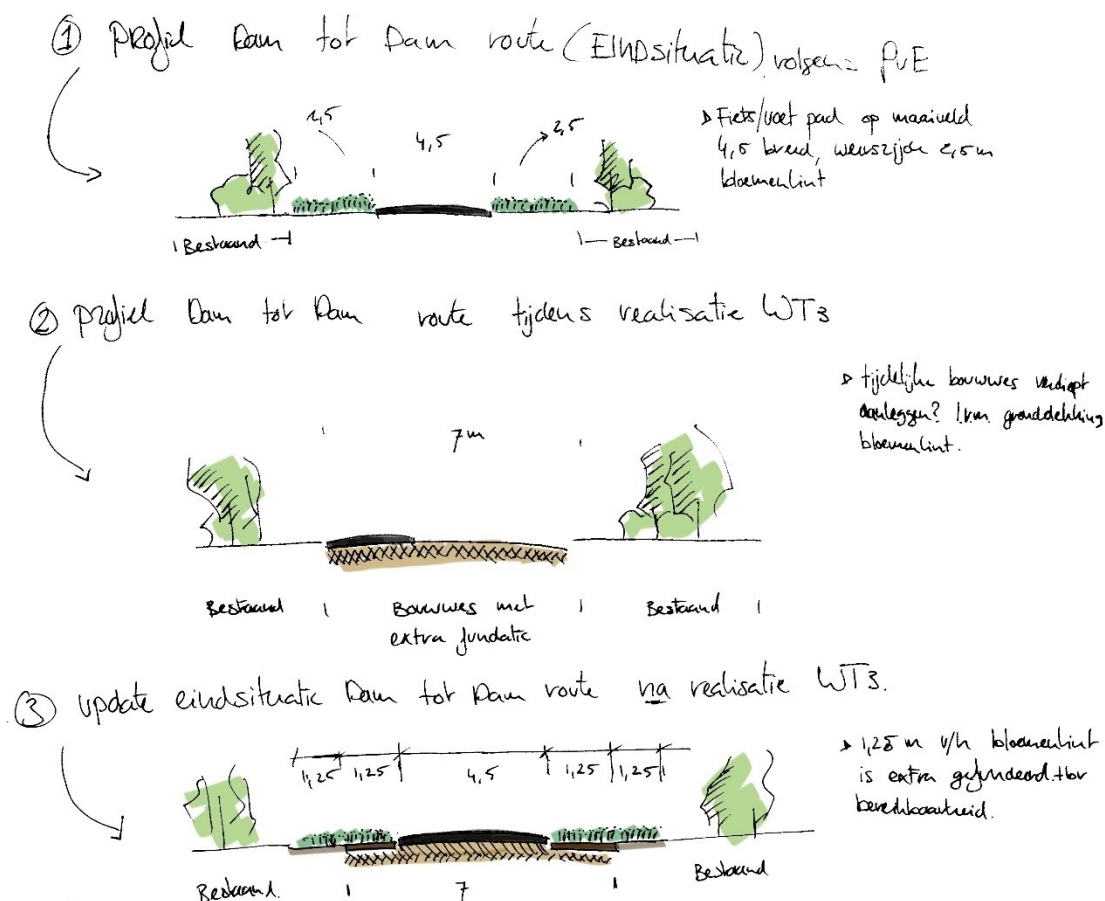 ① Profiel Dam tot Dam route (EINDsituatie) volgens PvE
2,5
4,5
2,5
Fiets/voet pad op maaiveld
4,5 breed, weerszijde 2,5 m
bloemenlint
Bestaand
Bestaand
② profiel Dam tot Dam route tijdens realisatie WT3
tijdelijke bouwweg verdiept
aanleggen? I.v.m. gronddekking
bloemenlint.
7 m
Bestaand
Bouwweg met
extra fundatie
Bestaand
③ update eindsituatie Dam tot Dam route na realisatie WT3.
1,25 1,25 4,5 1,25 1,25
1,25 m v/h bloemenlint
is extra gefundeerd
Bestaand.
7
Bestaand